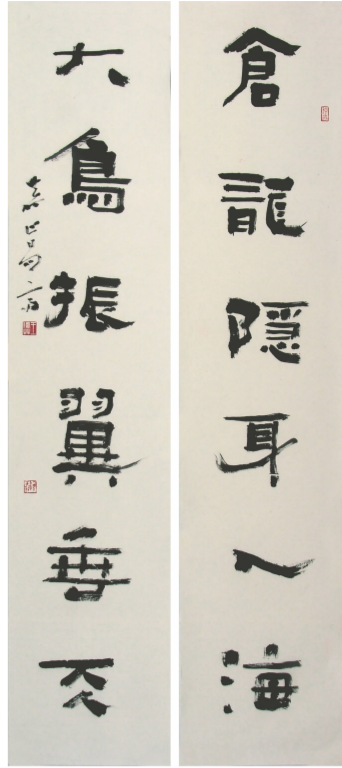 倉龍隱身入海
大鳥振翼垂天